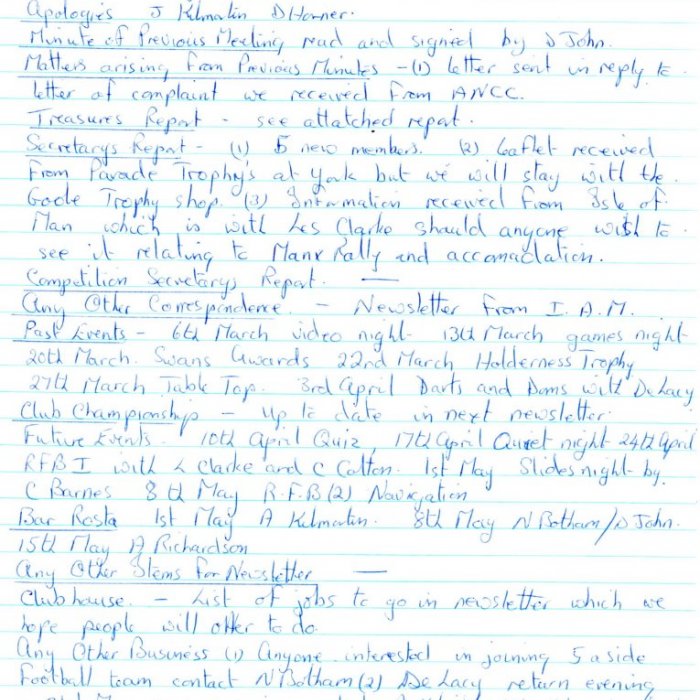 Apologies J Kilmartin D Horner.
Minute of Previous Meeting read and signed by D John.
Matters arising from Previous Minutes - (1) Letter sent in reply to
letter of complaint we received from ANCC.
Treasures Report - see attatched report.
Secretarys Report - (1) 5 new members. (2) Leaflet received
from Parade Trophy's at York but we will stay with the
Goole Trophy shop. (3) Information received from Isle of
Man which is with Les Clarke should anyone wish to
see it relating to Manx Rally and accomadation.
Competition Secretarys Report. —
Any Other Correspondence. - Newsletter from I.A.M.
Past Events - 6th March video night 13th March games night
20th March. Swans Awards 22nd March Holderness Trophy
27th March Table Top. 3rd April Darts and Doms with De Lacy
Club Championship - Up to date in next newsletter.
Future Events. 10th April Quiz, 17th April Quiet night 24th April
RFB I with L Clarke and C Cotton. 1st May Slides night by
C Barnes 8th May R.F.B (2) Navigation
Bar Rosta 1st May A Kilmartin. 8th May N Botham/D John.
15th May A Richardson
Any Other Items for Newsletter —
Clubhouse. - List of jobs to go in newsletter which we
hope people will offer to do.
Any Other Business (1) Anyone interested in joining 5 a side
football team contact N Botham (2) De Lacy return evening